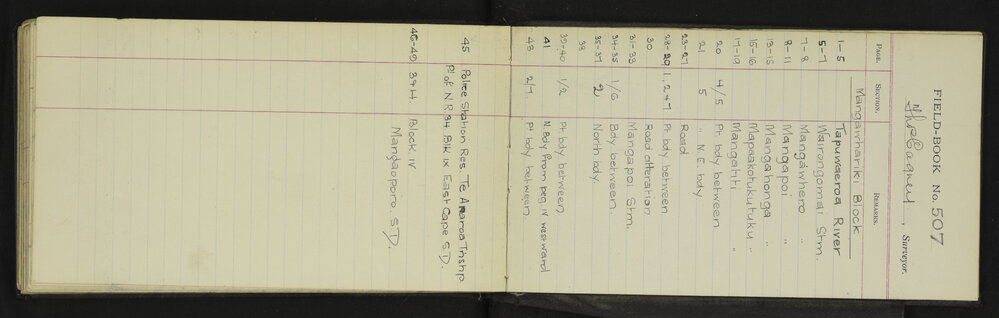 FIELD-BOOK No. 507
Thos Cagney, Surveyor.
PAGE. SECTION. REMARKS.
Mangawhariki Block
1-5 Tapuwaeroa River
5-7 Wairongomai Stm.
7-8 Mangawhero "
8-11 Mangapoi "
13-15 Mangahonga "
15-16 Mapaakotukutuku "
17-19 Mangatiti "
20 4/5 Pt. body between
21 5 " N.E. body
23-27 Road
28-29 1, 2+7 Pt body between
30 Road alteration
31-33 Mangapoi Stm.
34-35 1/6 Bdy between.
35-37 2 North body.
38
39-40 1/2 Pt. body between
41 N. Bdy from peg IV westward
43 2/7 Pt body between
45 Police Station Res. Te Araroa Tnshp
Pt of N.R. 34. Blk IX East Cape S.D.
46-49 39H Block IV
Mangaoporo. S.D.